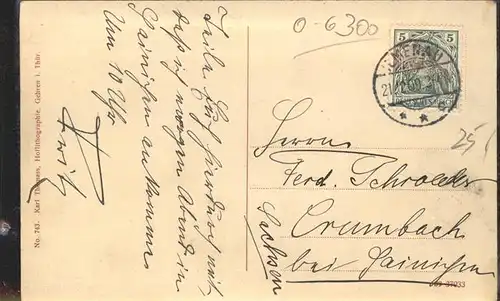 0-6300
Teile Euch hierdurch mit
daß ich morgen Abend in
Hainichen ankomme
Um 10 Uhr
Fritz
No. 743. Karl Thomas, Hoflithographie, Gehren i. Thür.
5 5
ILMENAU
25
Herrn
Ferd. Schroeder
Crumbach
bei Hainichen
Sachsen